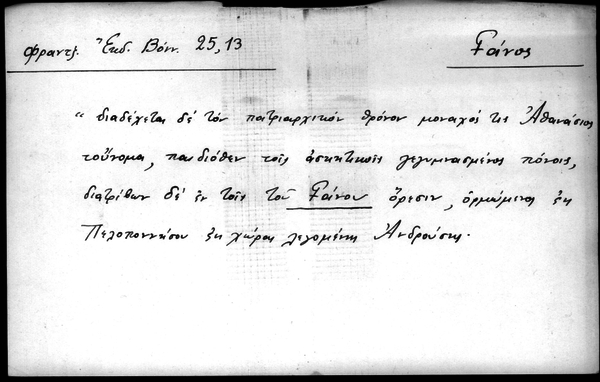 Φραντζ. Ἔκδ. Βόνν. 25,13
Γάνος
"διαδέχεται δέ τόν πατριαρχικόν θρόνον μοναχός τις Ἀθανάσιος
τοὔνομα, παιδιόθεν τοῖς ἀσκητικοῖς γεγυμνασμένος πόνοις,
διατρίβων δέ ἐν τοῖς τοῦ Γάνου ὄρεσιν, ὁρμώμενος ἐκ
Πελοποννήσου ἐκ χώρας λεγομένης Ἀνδρούσης.